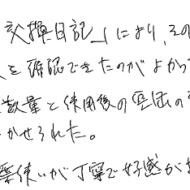 交換日記」により、その
を確認できたのがよかっ
数量と使用後の
かせられた。
葉使いが丁寧で好感が